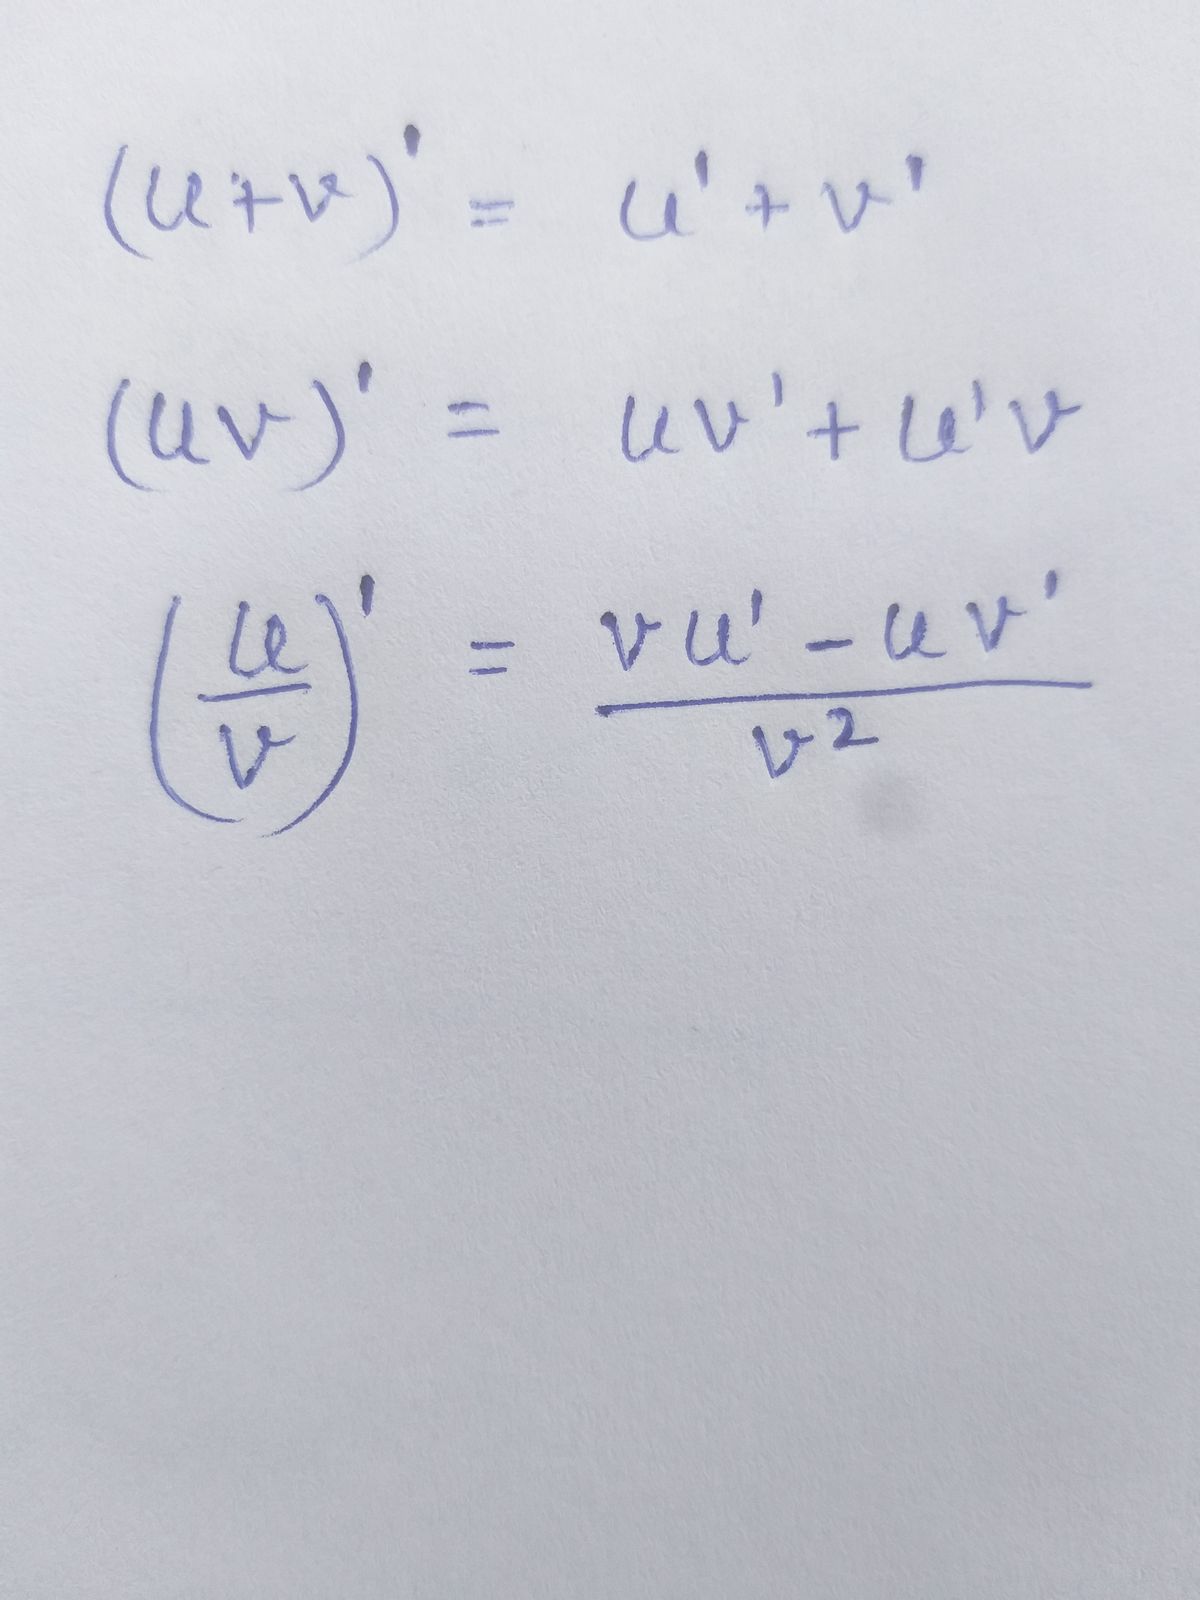 (u+v)' = u' + v'
(uv)' = uv' + u'v
(u/v)' = (vu' - uv')/v²